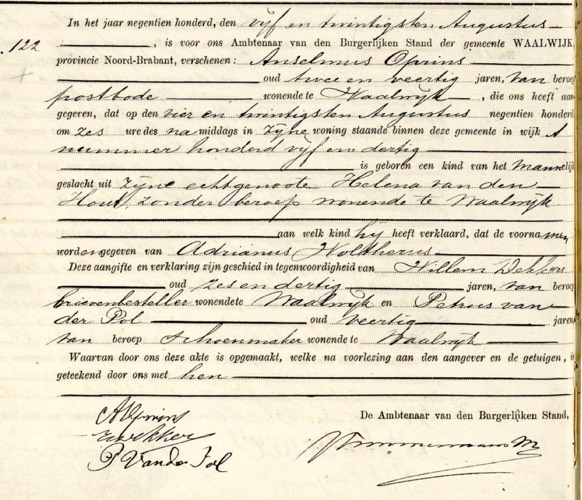 In het jaar negentien honderd, den vijf en twintigsten Augustus
122
, is voor ons Ambtenaar van den Burgerlijken Stand der gemeente WAALWIJK
provincie Noord-Brabant, verschenen: Anselmus Oprins
oud twee en veertig jaren, van beroep
postbode wonende te Waalwijk, die ons heeft aan
gegeven, dat op den vier en twintigsten Augustus negentien honderd
om zes ure des na middags in zijne woning staande binnen deze gemeente in wijk A
nummer honderd vijf en dertig
is geboren een kind van het Mannelijk
geslacht uit zijne echtgenoote Helena van den
Hout, zonder beroep wonende te Waalwijk
aan welk kind hij heeft verklaard, dat de voorna men
worden gegeven van Adrianus
Deze aangifte en verklaring zijn geschied in tegenwoordigheid van Willem Dekkers
oud zes en dertig jaren, van beroep
brievenbesteller wonende te Waalwijk en Petrus van
der Pol oud veertig jaren
van beroep schoenmaker wonende te Waalwijk
Waarvan door ons deze akte is opgemaakt, welke na voorlezing aan den aangever en de getuigen, is
geteekend door ons met hen
De Ambtenaar van den Burgerlijken Stand,
AOprins
P. Van der Pol